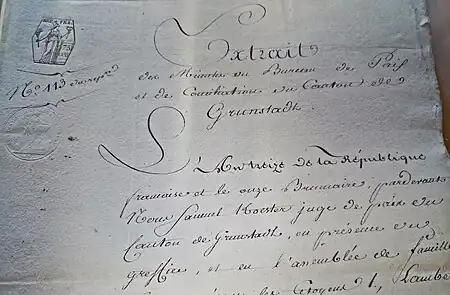 Extrait
des Minutes du Bureau de Paix
N.º 113 du rep.re
et de Conciliation du Canton de
Grunstadt.
L'An treize de la République
francaise et le onze Brumaire, pardevant
Nous Samuel Koester juge de paix du
Canton de Grunstadt, en présence du
greffier, et en l'assemblée de famille
les Citoyens 1, Lambe